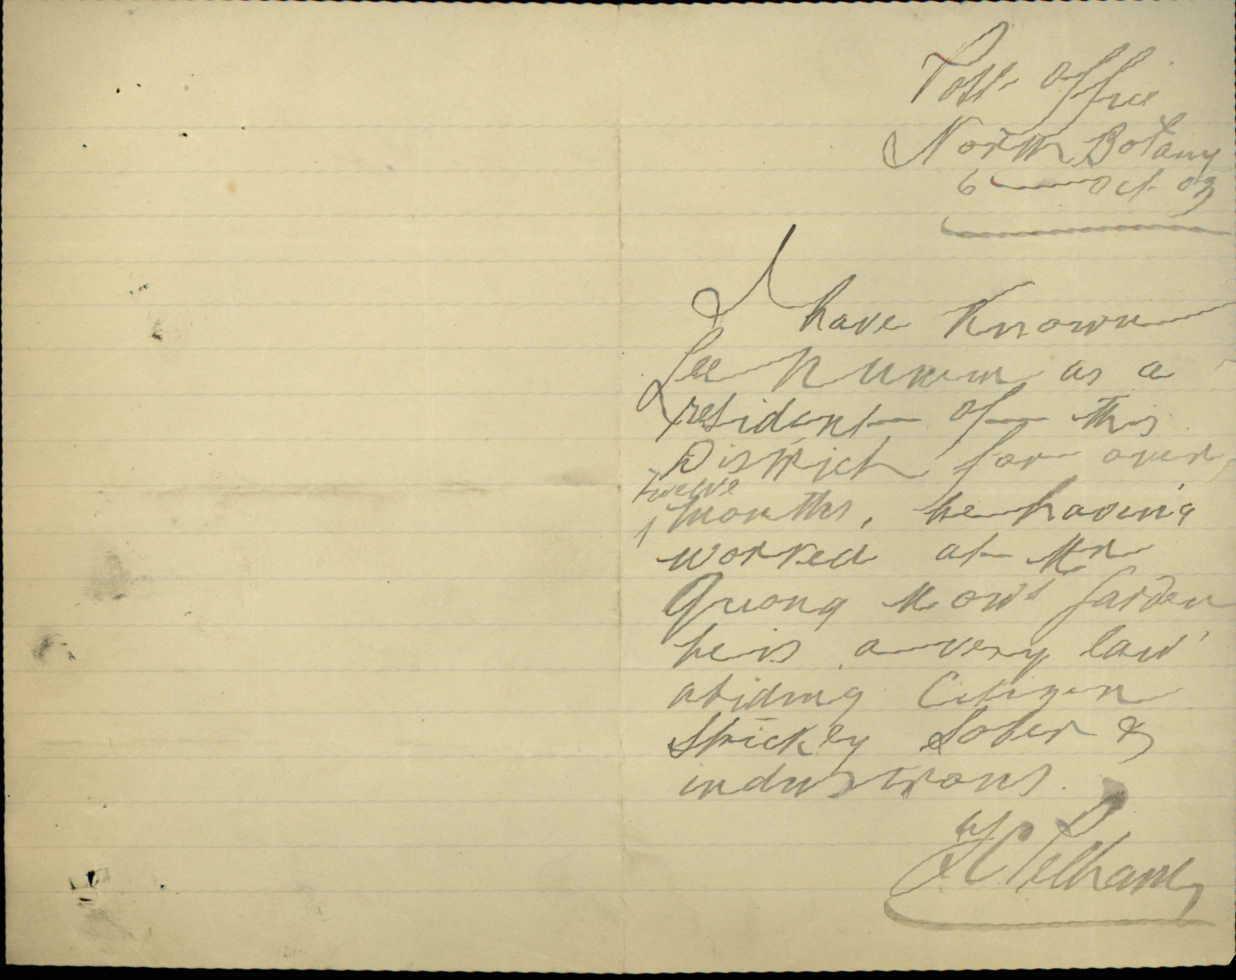 Post Office
North Botany
6 Oct 03
I have Known
Lee as a
resident of this
District for over
twelve
months, he having
worked at Mr
Quong Mow's Garden
he is a very law
abiding Citizen
Strickly Sober &
industrous.
Pelham